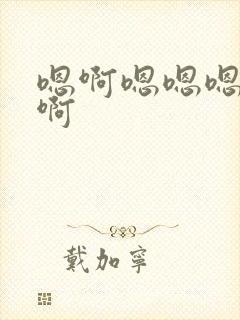 嗯啊嗯嗯嗯
啊
戴加寧